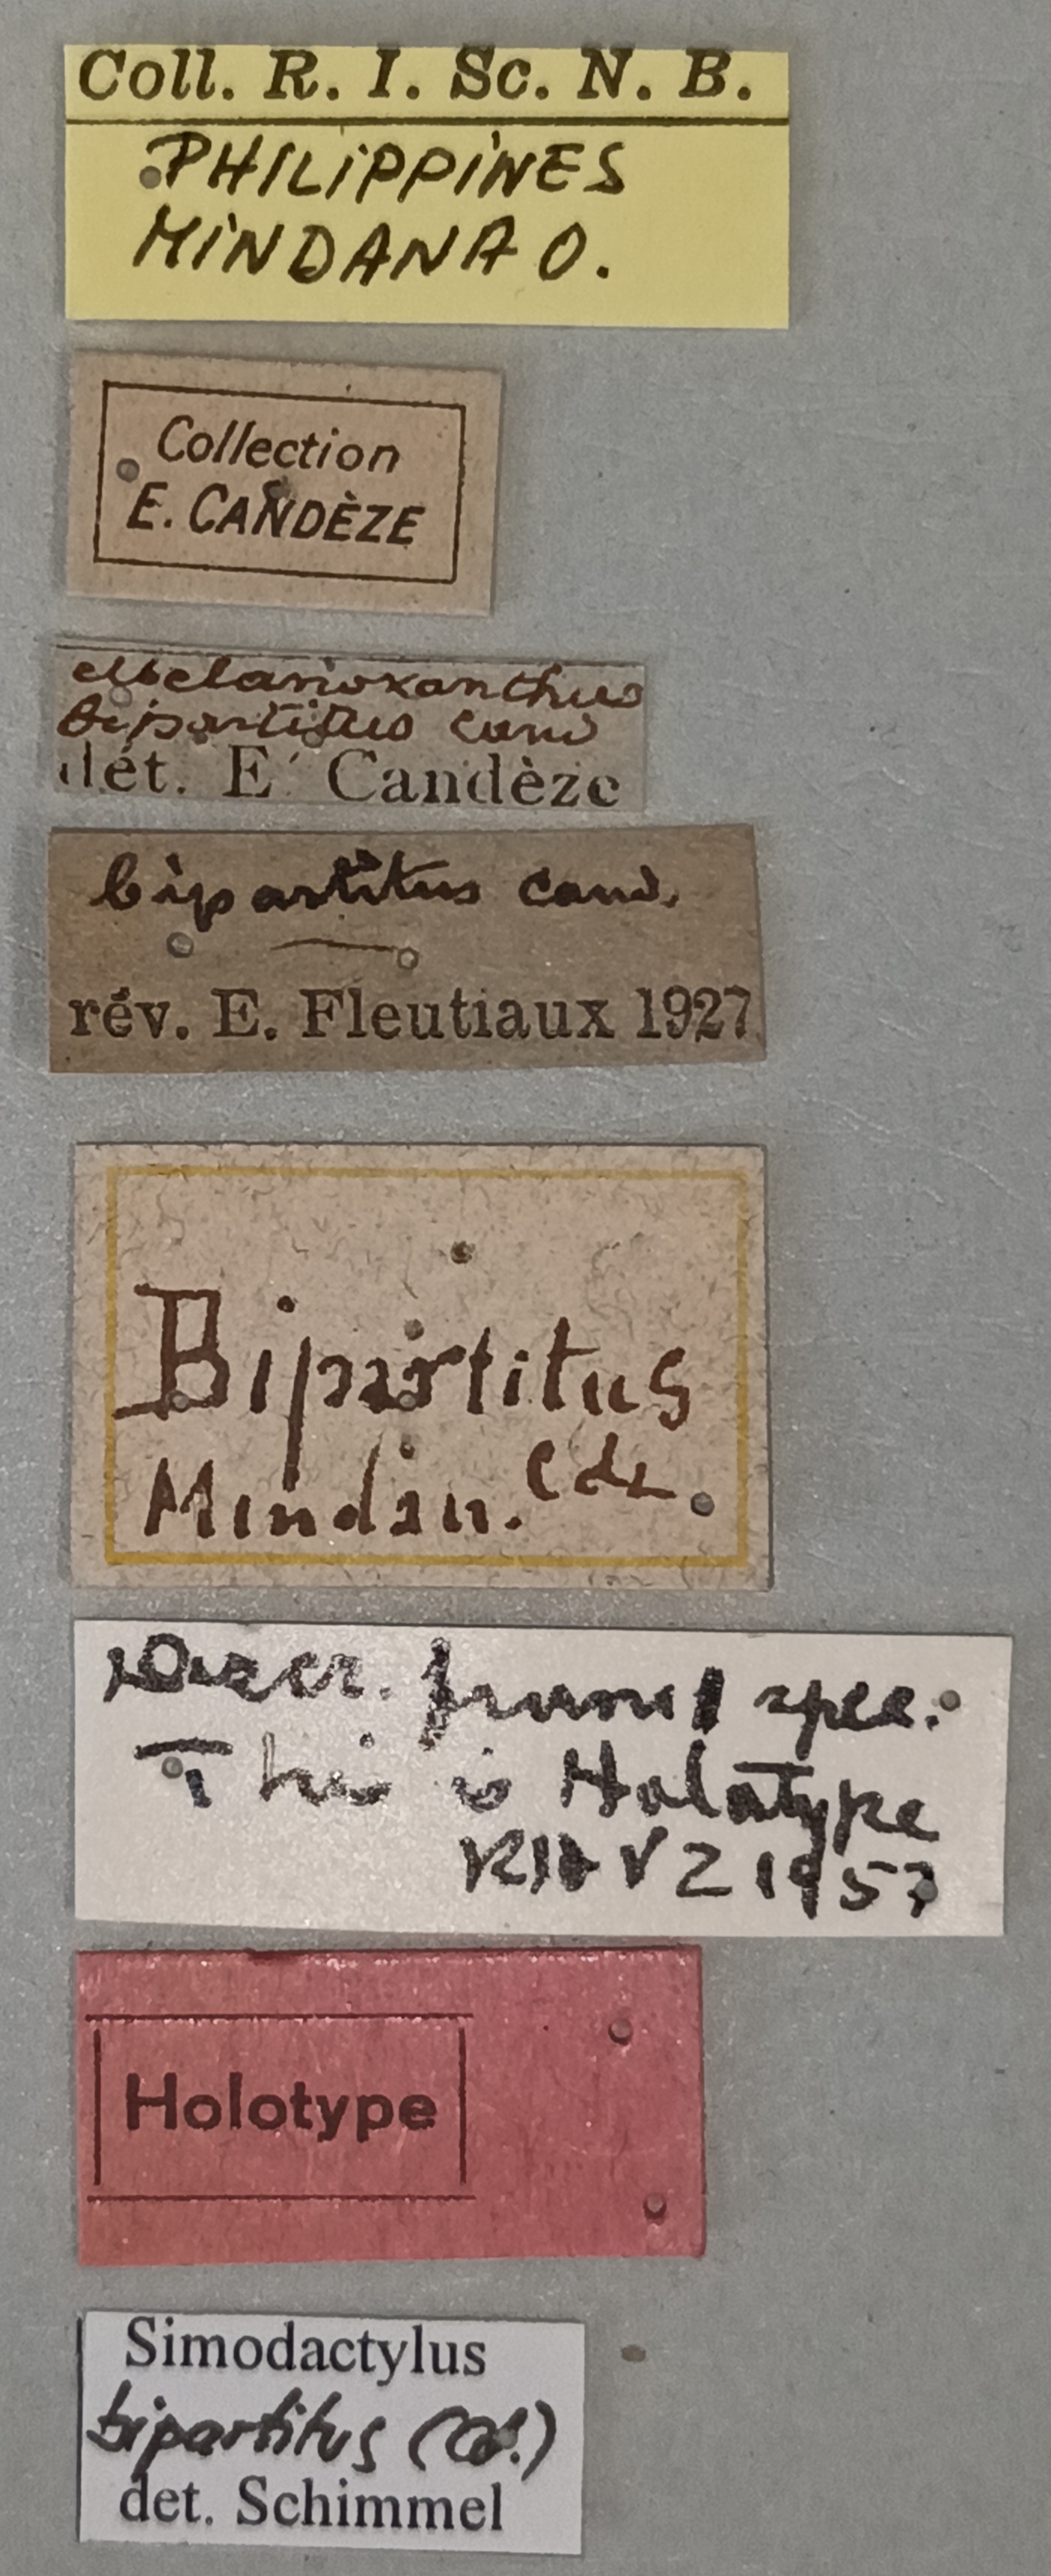 Coll. R. I. Sc. N. B.
PHILIPPINES
MINDANAO.
Collection
E. CANDÈZE
Melanoxanthus
bipartitus Cand
dét. E. Candèze
bipartitus Cand.
rév. E. Fleutiaux 1927
Bipartitus
Mindan. Cdz.
Descr. from 1 spec.
This is Holotype
V Z 1957
Holotype
Simodactylus
bipartitus (Cd.)
det. Schimmel